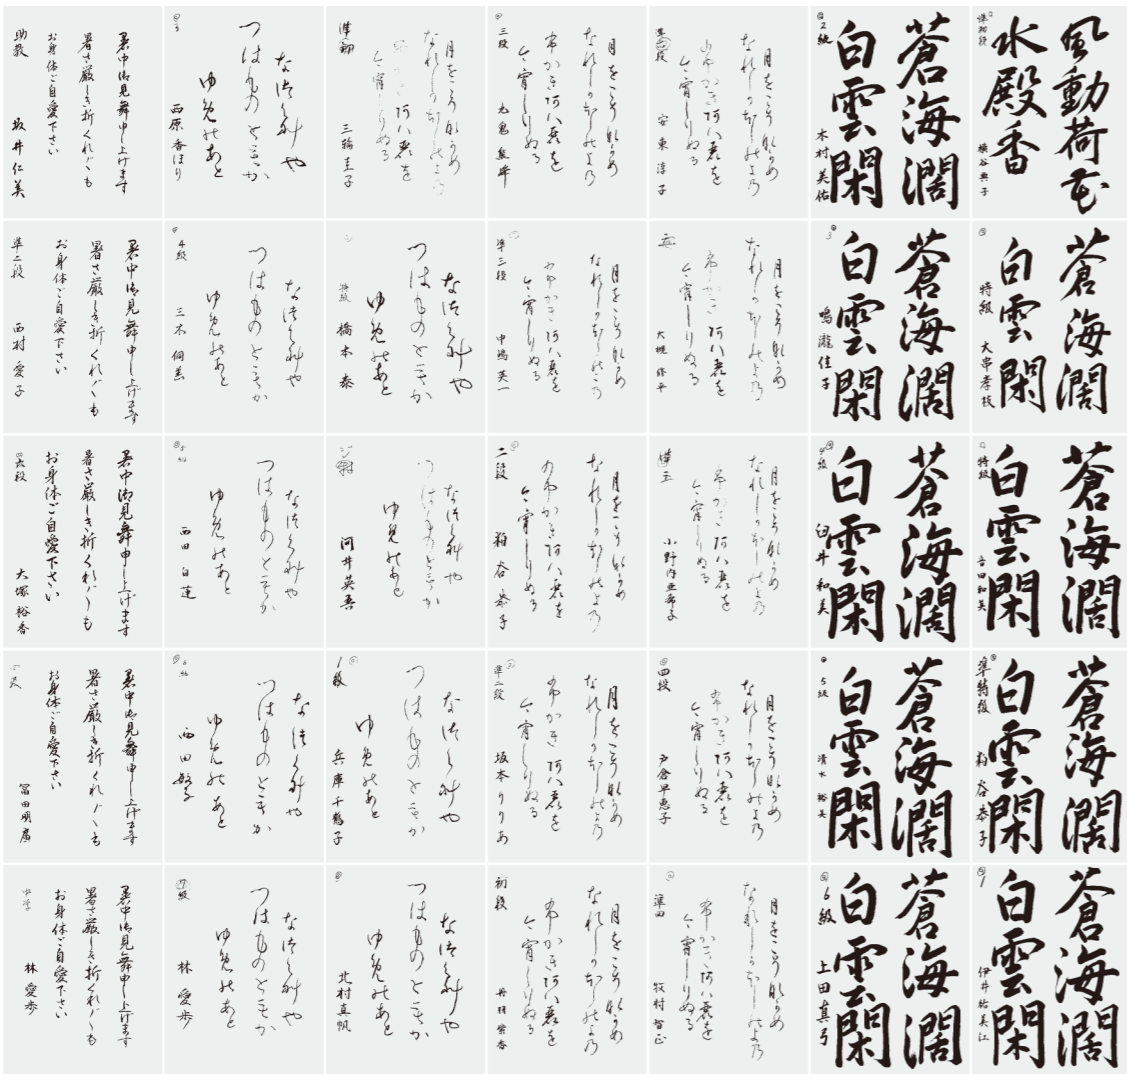 風動荷花
水殿香
準初段 横谷典子
蒼海濶
白雲閑
2級 木村美佑
月をこそ那可め
なれしかほしのよ乃
ふかき阿八れを
今宵しりぬる
安東淳子
月をこそ那可め
なれしかほしのよ乃
ふかき阿八れを
今宵しりぬる
三段
月をこそ那可め
なれしかほしのよ乃
ふかき阿八れを
今宵しりぬる
準初 三輪圭子
なつくさや
つはものともか
ゆめのあと
3 西原香ほり
暑中御見舞申し上げます
暑さ厳しき折くれぐれも
お身体ご自愛下さい
助教 坂井仁美
蒼海濶
白雲閑
特級 大串孝枝
蒼海濶
白雲閑
3 鳴瀧佳子
月をこそ那可め
なれしかほしのよ乃
ふかき阿八れを
今宵しりぬる
月をこそ那可め
なれしかほしのよ乃
ふかき阿八れを
今宵しりぬる
準三段 中嶋英一
なつくさや
つはものともか
ゆめのあと
特級 橋本泰
なつくさや
つはものともか
ゆめのあと
4級 三木
暑中御見舞申し上げます
暑さ厳しき折くれぐれも
お身体ご自愛下さい
準二段 西村愛子
蒼海濶
白雲閑
特級 吉田和美
蒼海濶
白雲閑
4級 臼井和美
月をこそ那可め
なれしかほしのよ乃
ふかき阿八れを
今宵しりぬる
小野内亜希子
月をこそ那可め
なれしかほしのよ乃
ふかき阿八れを
今宵しりぬる
二段 粕谷恭子
なつくさや
つはものともか
ゆめのあと
河井英吾
なつくさや
つはものともか
ゆめのあと
西田白蓮
暑中御見舞申し上げます
暑さ厳しき折くれぐれも
お身体ご自愛下さい
大塚裕香
蒼海濶
白雲閑
準特級 粕谷恭子
蒼海濶
白雲閑
5級 清水裕美
月をこそ那可め
なれしかほしのよ乃
ふかき阿八れを
今宵しりぬる
四段 戸倉早恵子
月をこそ那可め
なれしかほしのよ乃
ふかき阿八れを
今宵しりぬる
準二段 坂本りりあ
なつくさや
つはものともか
ゆめのあと
1級 兵庫千鶴子
なつくさや
つはものともか
ゆめのあと
6級 西田
暑中御見舞申し上げます
暑さ厳しき折くれぐれも
お身体ご自愛下さい
冨田明廣
蒼海濶
白雲閑
1 伊井祐美江
蒼海濶
白雲閑
6級 土田真弓
月をこそ那可め
なれしかほしのよ乃
ふかき阿八れを
今宵しりぬる
準四 牧村智正
月をこそ那可め
なれしかほしのよ乃
ふかき阿八れを
今宵しりぬる
初段 丹羽紫香
なつくさや
つはものともか
ゆめのあと
北村真帆
なつくさや
つはものともか
ゆめのあと
7級 林愛歩
暑中御見舞申し上げます
暑さ厳しき折くれぐれも
お身体ご自愛下さい
中学 林愛歩